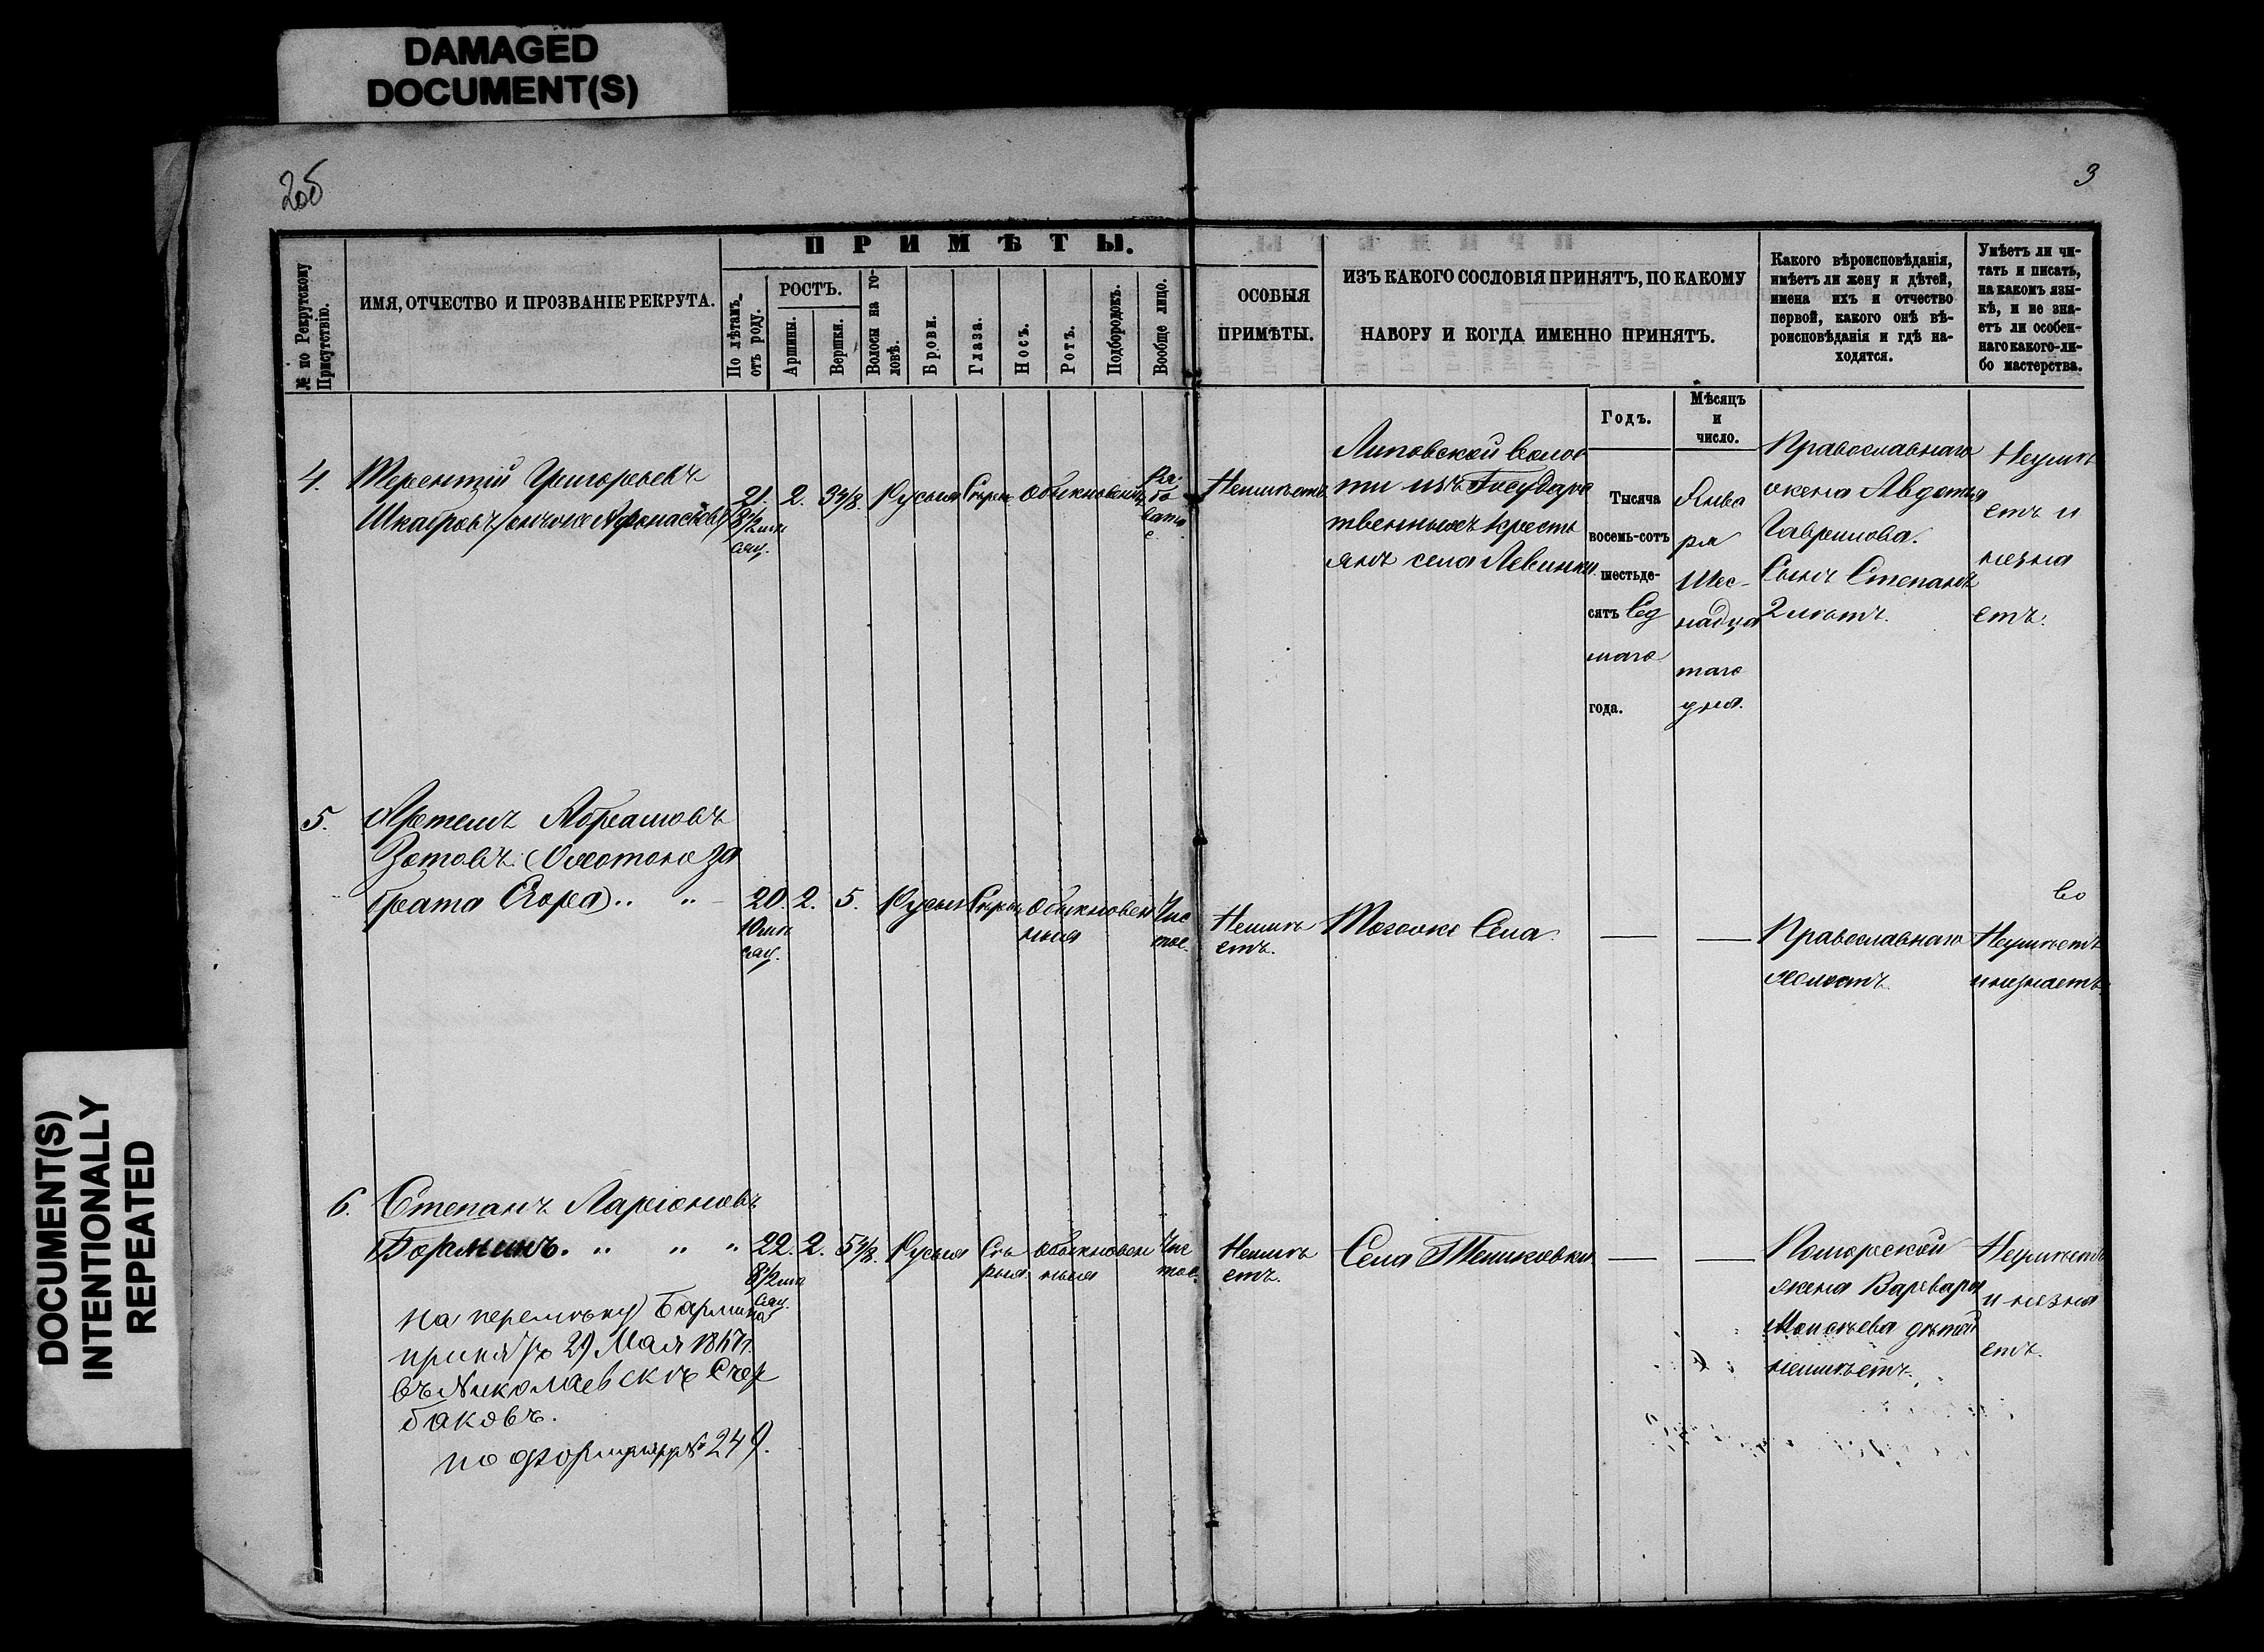 DAMAGED
DOCUMENT(S)
DOCUMENT(S)
INTENTIONALLY
REPEATED
2об
3
ПРИМѢТЫ.
№ по Рекрутскому Присутствію.
ИМЯ, ОТЧЕСТВО И ПРОЗВАНІЕ РЕКРУТА.
По лѣтамъ отъ роду.
РОСТЪ.
Аршины.
Вершки.
Волосы на головѣ.
Брови.
Глаза.
Носъ.
Ротъ.
Подбородокъ.
Вообще лицо.
ОСОБЫЯ
ПРИМѢТЫ.
ИЗЪ КАКОГО СОСЛОВІЯ ПРИНЯТЪ, ПО КАКОМУ
НАБОРУ И КОГДА ИМЕННО ПРИНЯТЪ.
Годъ.
Мѣсяцъ
и
число.
Какого вѣроисповѣданія,
имѣетъ ли жену и дѣтей,
имена ихъ и отчество
первой, какого онѣ вѣ-
роисповѣданія и гдѣ на-
ходятся.
Умѣетъ ли чи-
тать и писать,
на какомъ язы-
кѣ, и не зна-
етъ ли особен-
наго какого-ли-
бо мастерства.
4.
Терентій Григорьевъ
21.
8½ мѣ
сяц.
2.
3⅜.
Русыя
Сѣрые
Обыкновенн
Ря-
бо
вато
е.
Неимѣетъ
Липовской волос
ти изъ Государс
твенныхъ кресть
янъ села Левинки.
Тысяча
восемь-сотъ
шестьде-
сятъ Сед
маго
года.
Янва
ря
Шес-
надца
таго
дня.
Православнаго
жена Авдотья
Гаврилова.
Сынъ Степанъ
2 лѣтъ.
Неумѣ
етъ и
незна
етъ.
5.
Артемъ Абрамовъ
Зотовъ (охотою за
брата Егора) .. „
20.
10 мѣ
сяц.
2.
5.
Русыя
Сѣрые
Обыкновен
ныя
Чис
тое.
Неимѣ
етъ.
Тогоже Села.
—
—
Православнаго
холостъ.
Во
Неумѣетъ
и незнаетъ.
6.
Степанъ Ларіоновъ
Борминъ. „ „ „
22.
8½ мѣ
сяц.
2.
5⅜.
Русыя
Сѣ
рыя
Обыкновен
ныя
Чис
тое.
Неимѣ
етъ.
Села Тешковки
—
—
Поморской
жена Варвара
Моисѣева дѣтей
неимѣетъ.
Неумѣетъ
и незна
етъ.
на перемѣну Бармина
принятъ 29 Мая 1867г.
въ Николаевскѣ Счер
баковъ.